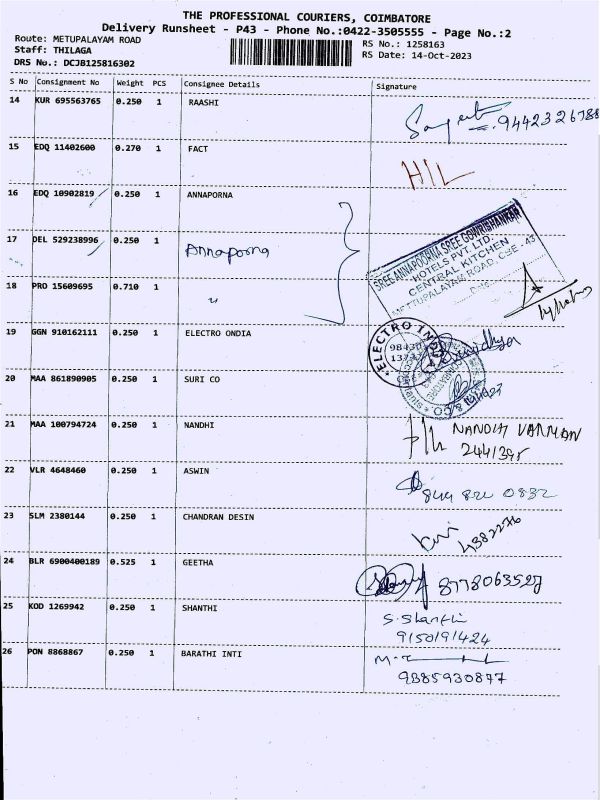 THE PROFESSIONAL COURIERS, COIMBATORE
Delivery Runsheet - P43 - Phone No.:0422-3505555 - Page No.:2
Route: METUPALAYAM ROAD
RS No.: 1258163
Staff: THILAGA
RS Date: 14-Oct-2023
DRS No.: DCJB125816302
S No Consignment No Weight PCS Consignee Details Signature
14 KUR 695563765 0.250 1 RAASHI 9442326788
15 EDQ 11402600 0.270 1 FACT HIL
16 EDQ 10902819 0.250 1 ANNAPORNA
17 DEL 529238996 0.250 1 Annaporna
18 PRO 15609695 0.710 1 "
SREE ANNAPOORNA SREE GOWRISHANKAR
HOTELS PVT. LTD.
CENTRAL KITCHEN
METTUPALAYAM ROAD, CBE - 43
Date
19 GGN 910162111 0.250 1 ELECTRO ONDIA
ELECTRO INDIA
20 MAA 861890905 0.250 1 SURI CO
& CO.
COIMBATORE
21 MAA 100794724 0.250 1 NANDHI NANDH VARMAN
2441395
22 VLR 4648460 0.250 1 ASWIN 0832
23 SLM 2380144 0.250 1 CHANDRAN DESIN 4382276
24 BLR 6900400189 0.525 1 GEETHA 8778063527
25 KOD 1269942 0.250 1 SHANTHI S. Shanthi
9150191424
26 PON 8868867 0.250 1 BARATHI INTI
9885930877